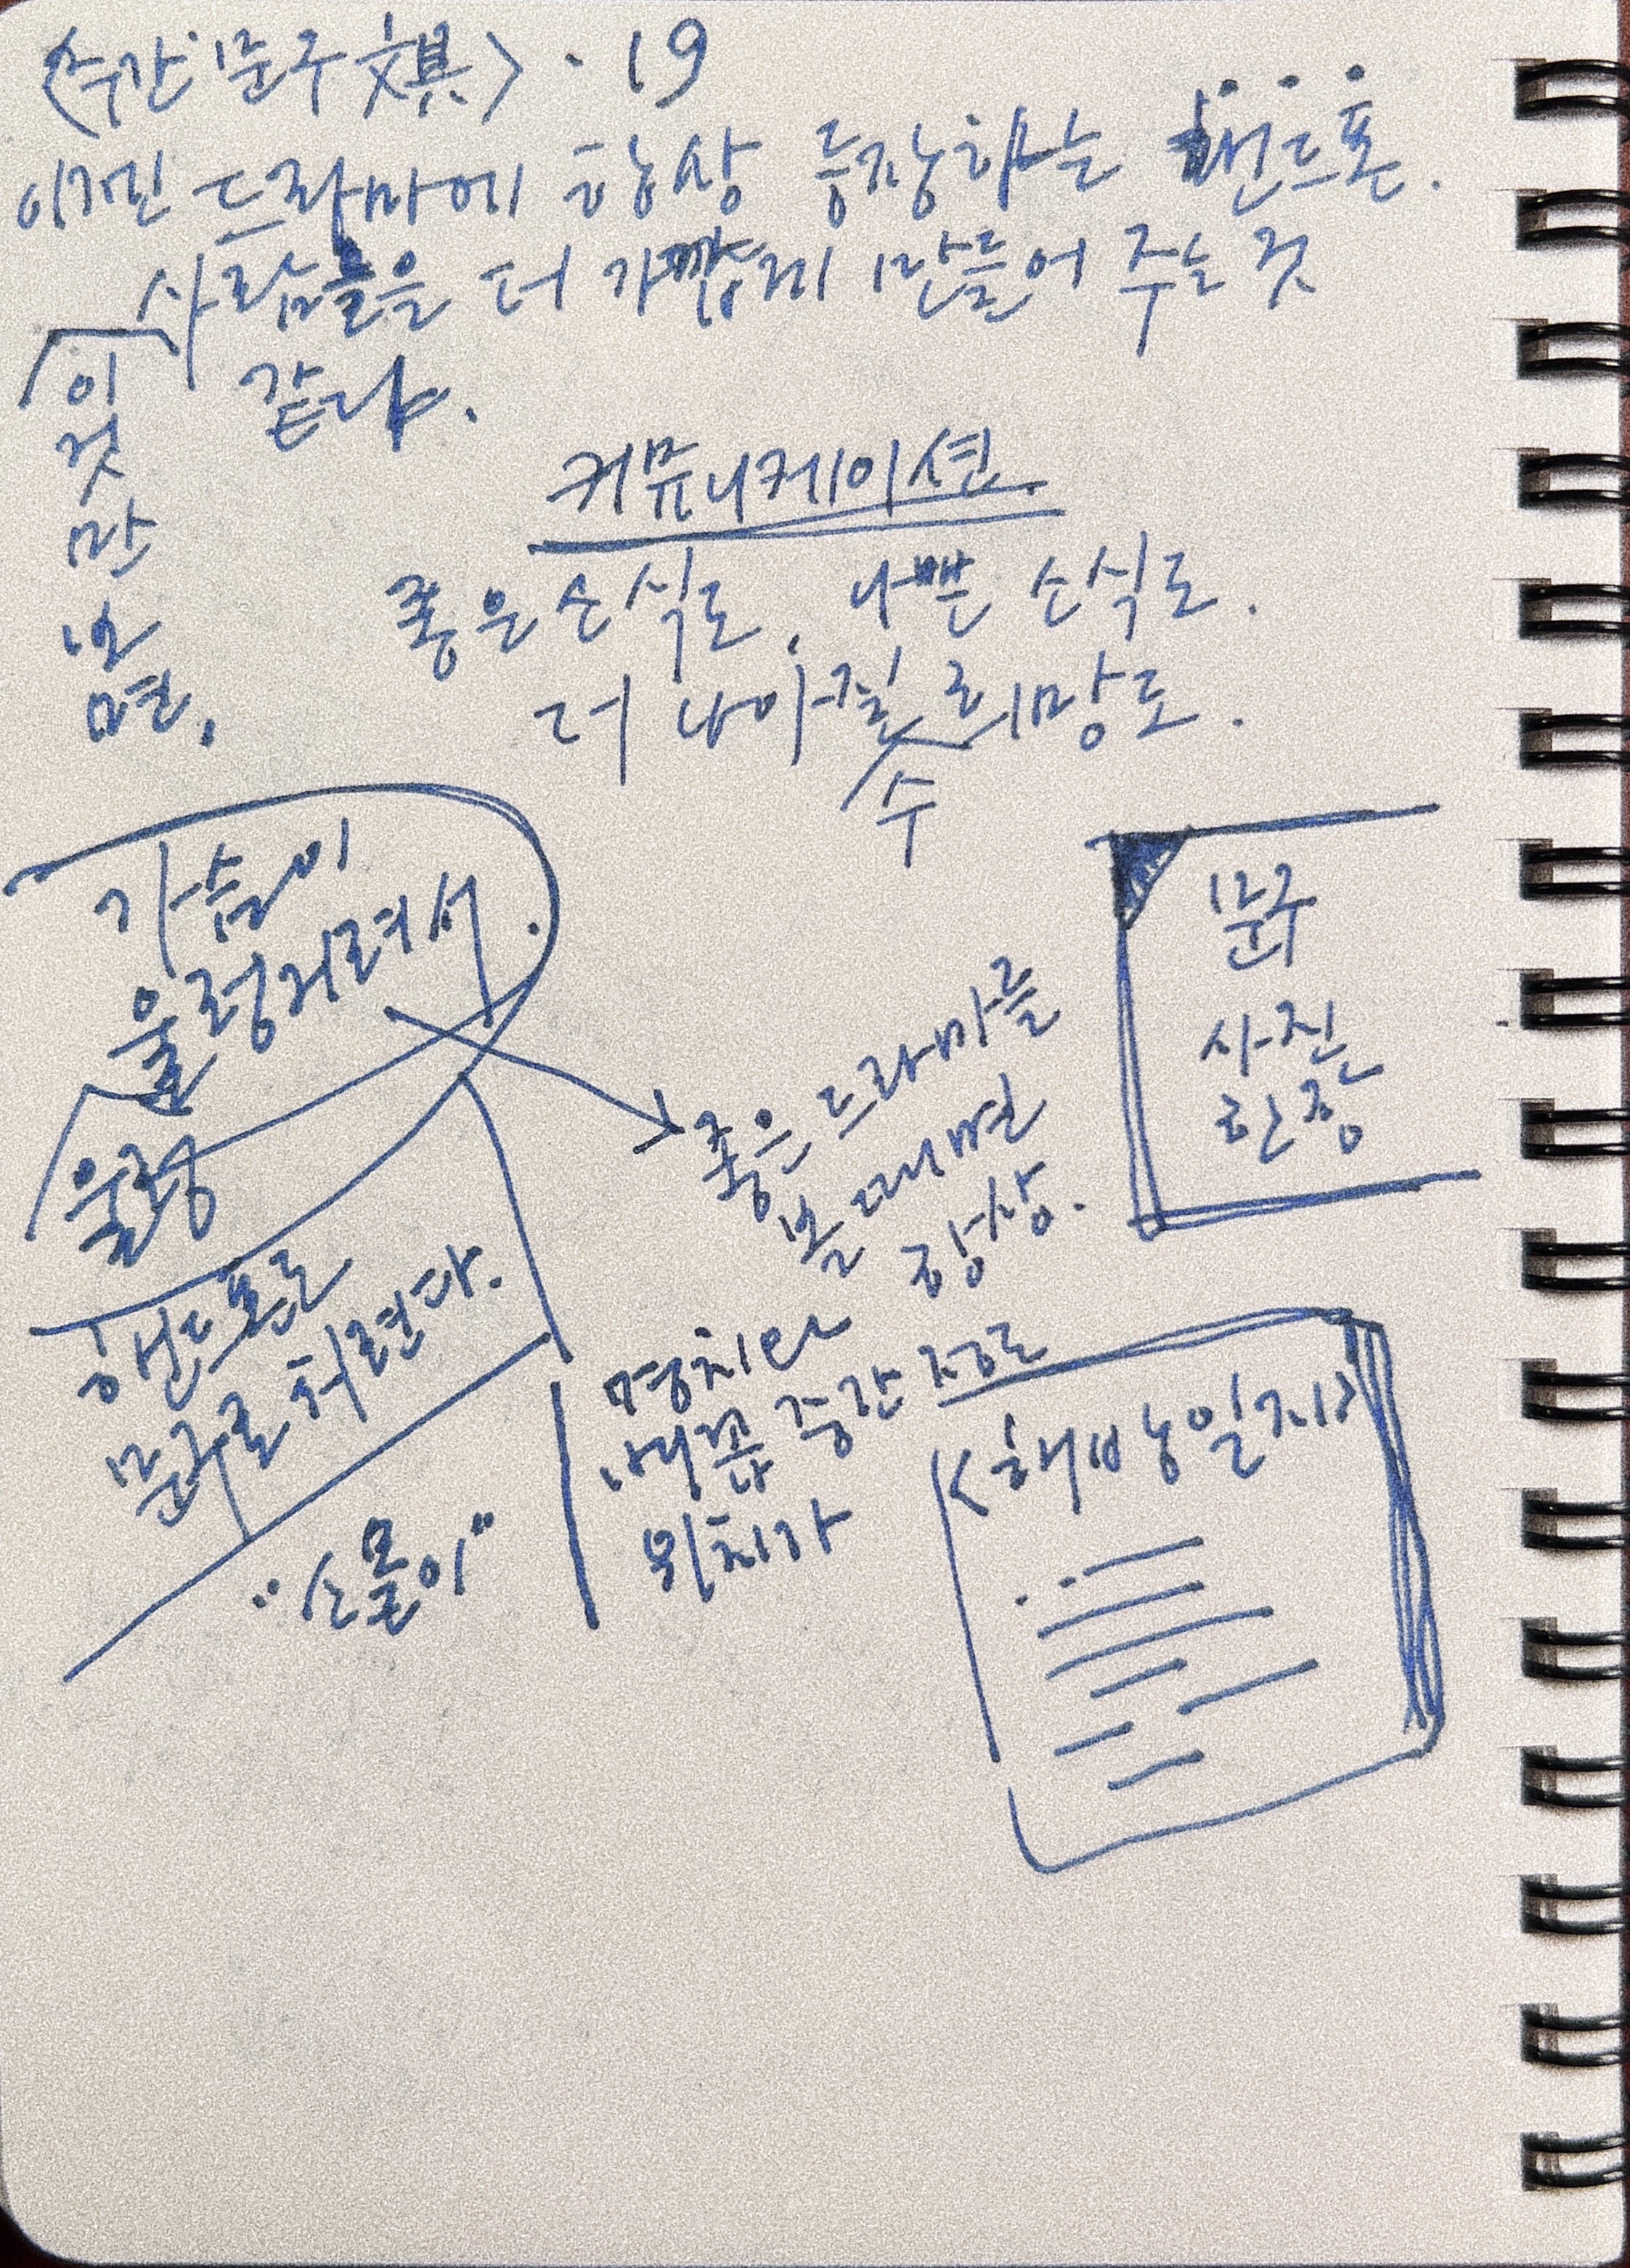 <주간 문주 文棋> · 19
이젠 드라마에 항상 등장하는 핸드폰.
사람들을 더 가깝게 만들어 주는 것
같다.
이
것
만
보
면,
커뮤니케이션
좋은 소식도, 나쁜 소식도.
더 나아질 희망도.
수
가슴이
울렁거려서.
울렁
핸드폰도
문주도 허련다.
"소몰이"
좋은 드라마를
볼 때면
항상.
명치나
배꼽 중간 정도
위치가
문주
사진
한장
<해방일지>